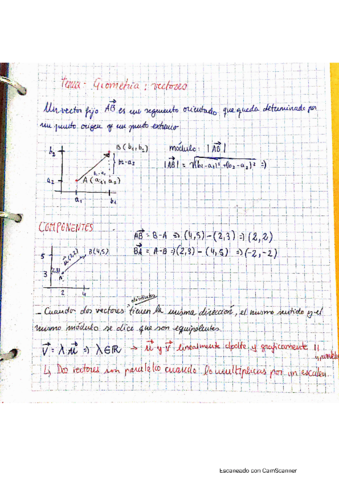 Tema - Geometría: vectores
Un vector fijo AB es un segmento orientado que queda determinado por
un punto origen y un punto extremo
b₂ B (b₁, b₂) módulo: |AB|
a₂ A (a₁, a₂) |AB| = √(b₁-a₁)² + (b₂-a₂)²
a₁ b₁
COMPONENTES
AB = B - A => (4,5) - (2,3) => (2,2)
BA = A - B => (2,3) - (4,5) => (-2,-2)
5 B(4,5)
3 A
2 4
- Cuando dos vectores tienen la misma dirección, el mismo sentido y el
mismo módulo se dice que son equipolentes.
v = λ u => λ ∈ ℝ -> u y v linealmente dpdte y graficamente ||
↳ Dos vectores son paralelos cuando son multiplicos por un escalar
Escaneado con CamScanner